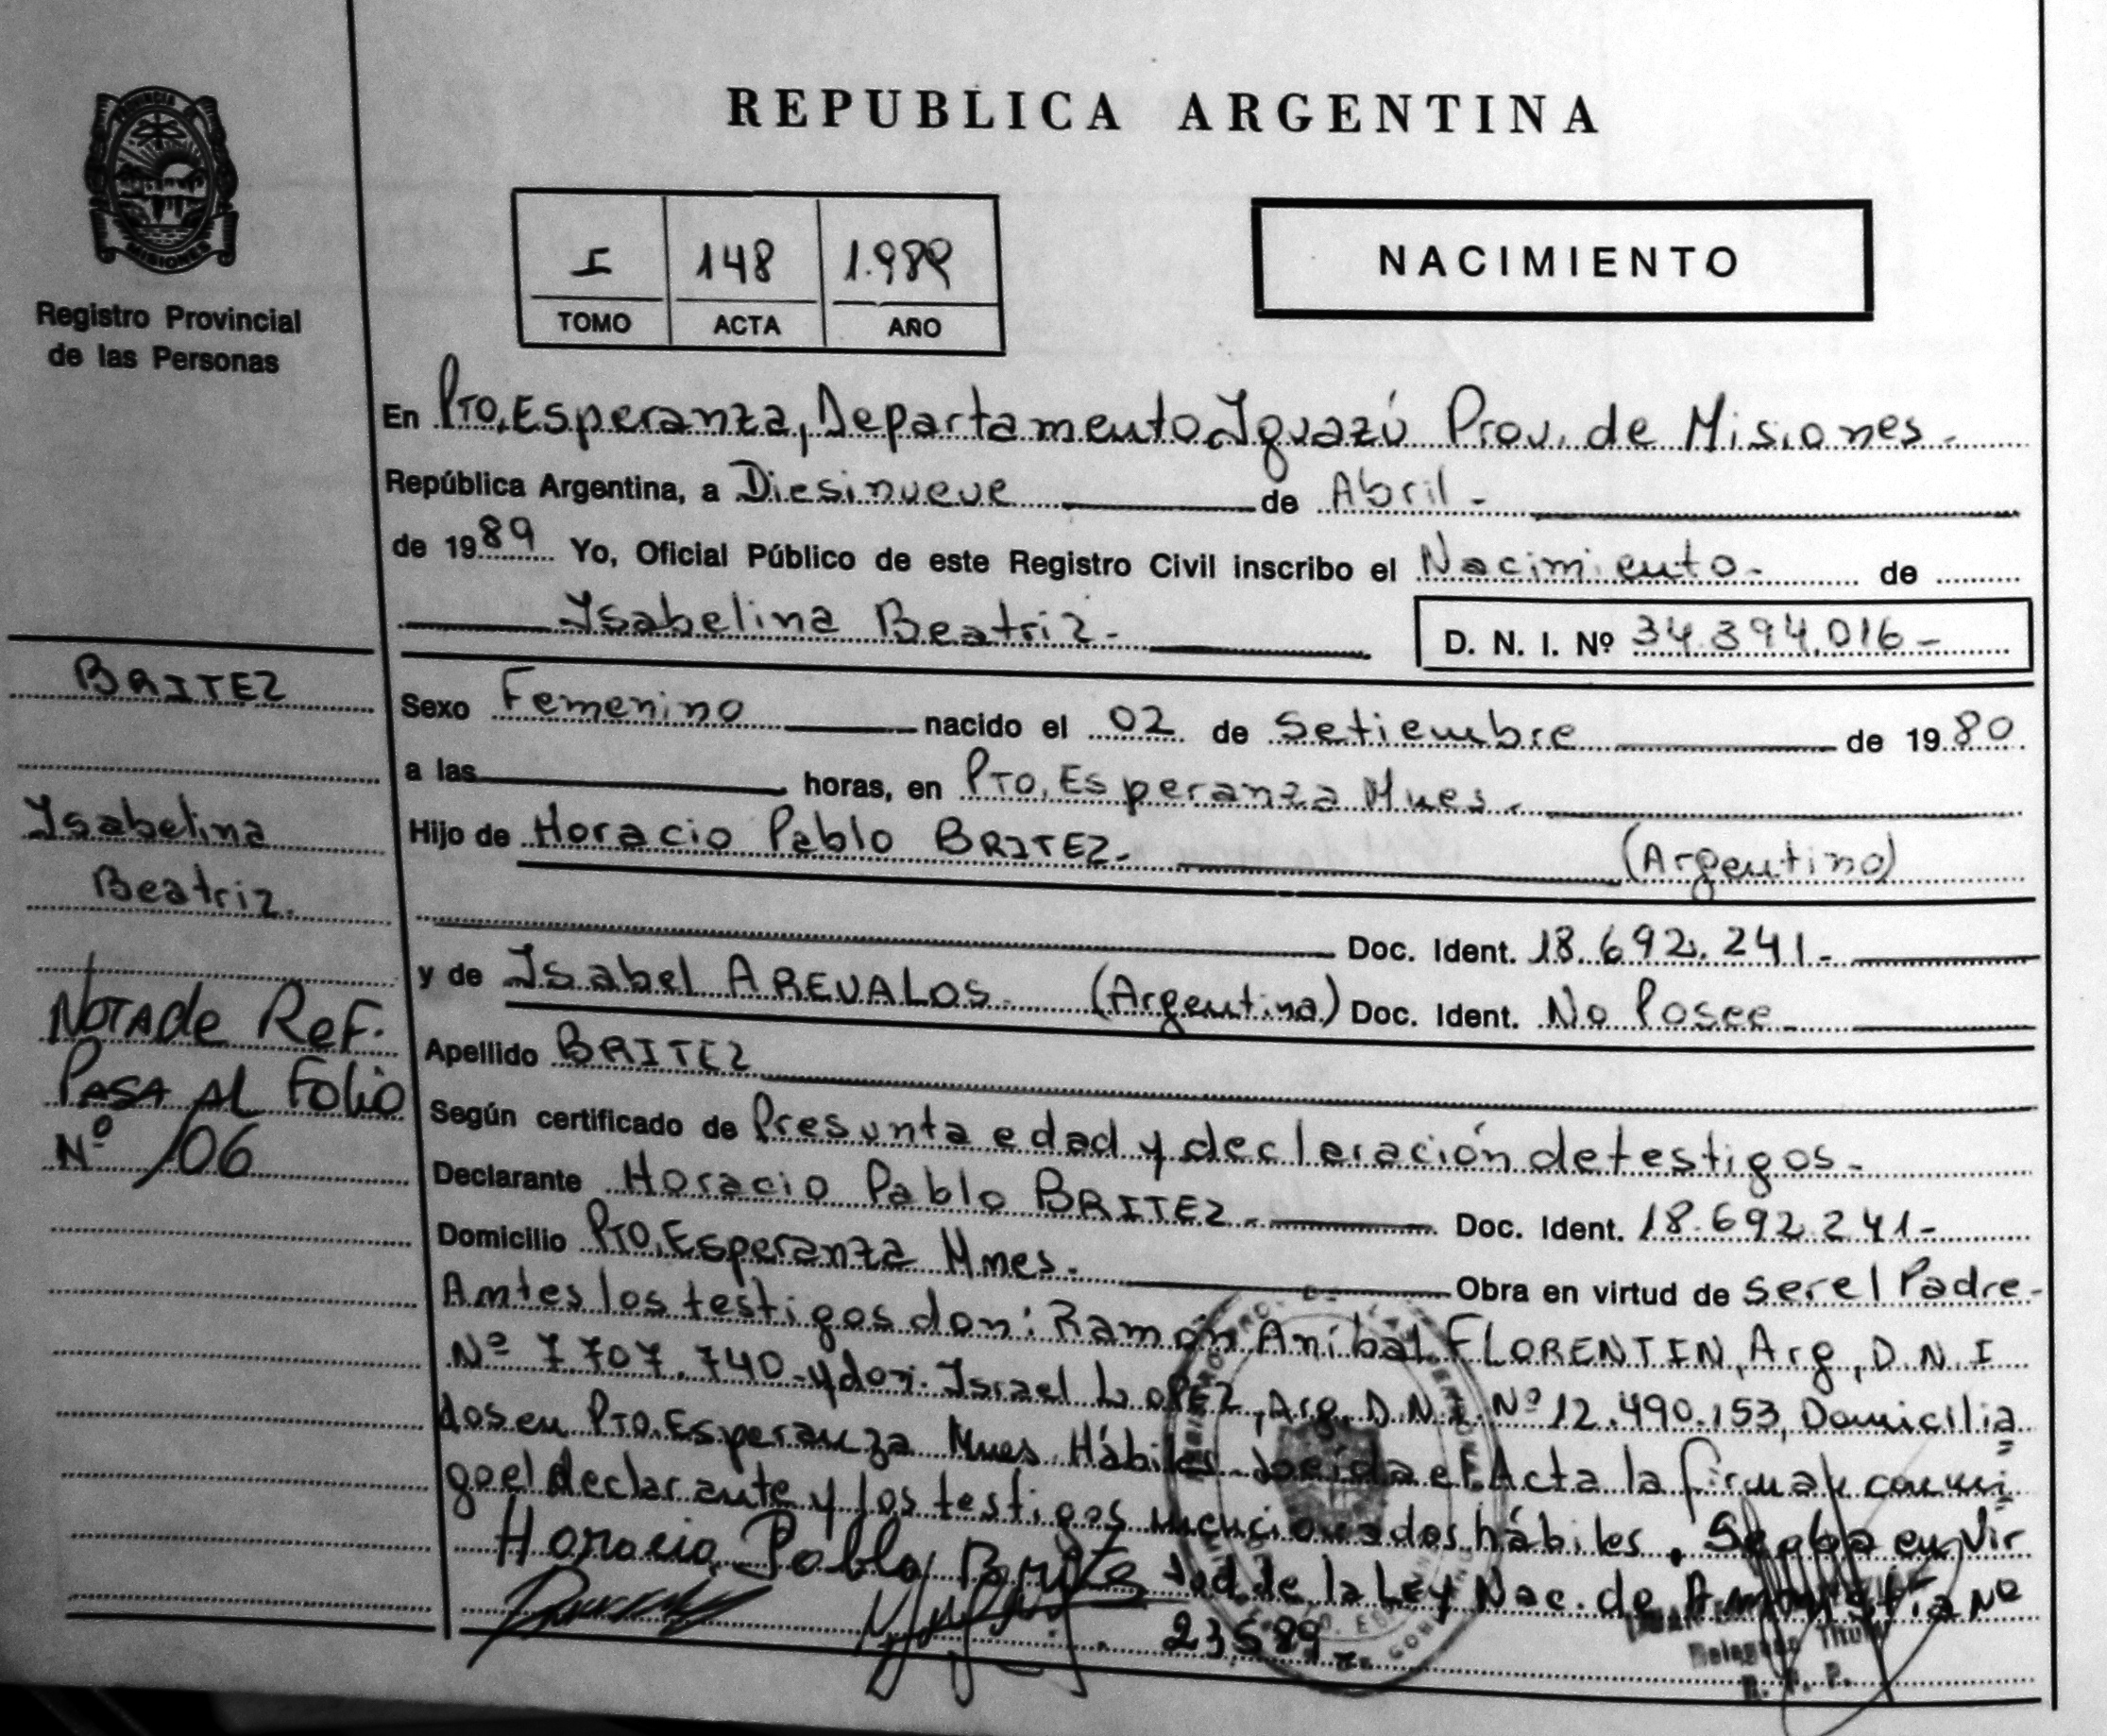 PROVINCIA DE
MISIONES
Registro Provincial
de las Personas
REPUBLICA ARGENTINA
I 148 1.989
TOMO ACTA AÑO
NACIMIENTO
En Pto. Esperanza, Departamento Iguazú Prov. de Misiones.-
República Argentina, a Diesinueve de Abril.-
de 1989 Yo, Oficial Público de este Registro Civil inscribo el Nacimiento.- de
Isabelina Beatriz.-
D. N. I. Nº 34.394.016-
BRITEZ
Isabelina
Beatriz.
NOTA de Ref.
PASA AL Folio
Nº 106
Sexo Femenino nacido el 02 de Setiembre de 1980
a las horas, en Pto. Esperanza Mnes.-
Hijo de Horacio Pablo BRITEZ.- (Argentino)
Doc. Ident. 18.692.241.-
y de Isabel AREVALOS.- (Argentina) Doc. Ident. No Posee.-
Apellido BRITEZ
Según certificado de Presunta edad y declaración de testigos.-
Declarante Horacio Pablo BRITEZ.- Doc. Ident. 18.692.241-
Domicilio Pto. Esperanza Mnes.- Obra en virtud de ser el Padre-
Antes los testigos don: Ramón Aníbal FLORENTIN, Arg, D.N.I
Nº 7.707.740-y don: Israel LOPEZ, Arg, D.N.I. Nº 12.490.153, Domicilia
dos en Pto. Esperanza Mnes. Hábiles- Leída el Acta la firman conmi
go el declarante y los testigos mencionados hábiles. Se en Vir
Horacio Pablo Britez tud de la Ley Nac. de Amnistía Nº
23.589.-
Delegado Titular
R. P. P.